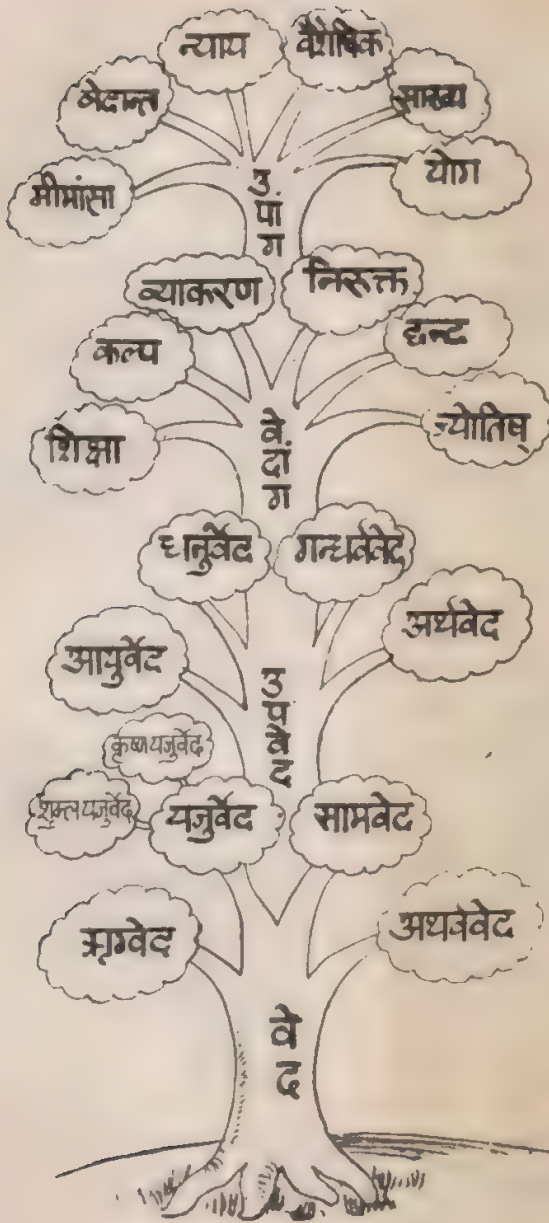 न्याय
वैशेषिक
वेदान्त
साख्य
मीमांसा
योग
उपांग
व्याकरण
निरूक्त
कल्प
छन्द
शिक्षा
ज्योतिष्
वेदांग
धनुर्वेद
गन्धर्ववेद
आयुर्वेद
अर्थवेद
उपवेद
कृष्ण यजुर्वेद
शुक्ल यजुर्वेद
यजुर्वेद
सामवेद
ऋग्वेद
अथर्ववेद
वेद